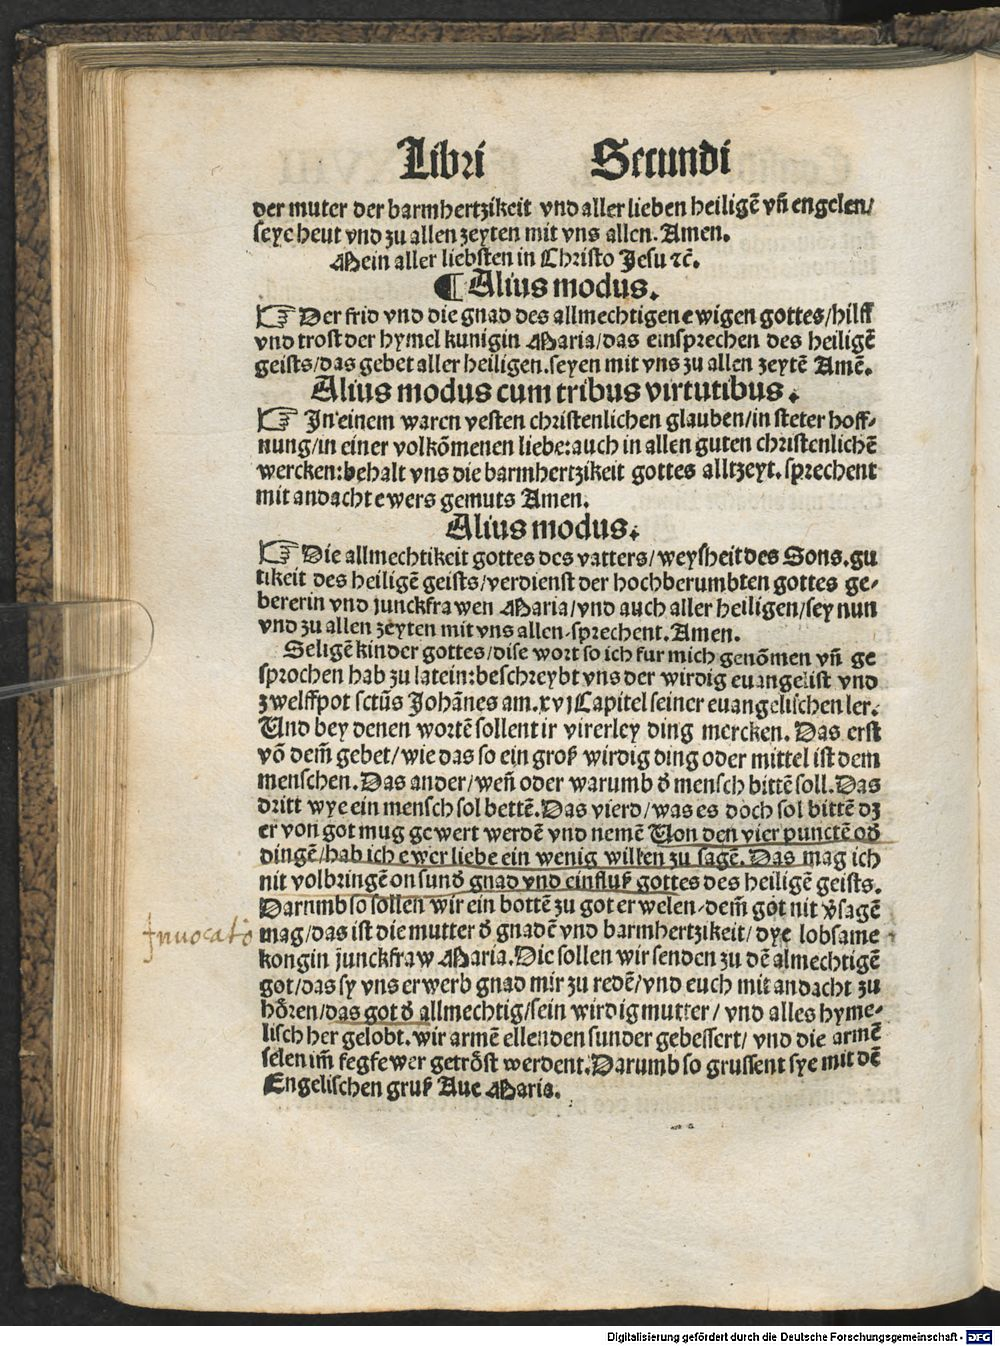 Libri Secundi
der muter der barmhertzikeit vnd aller lieben heiligē vn̄ engelen/
seye heut vnd zu allen zeyten mit vns allen. Amen.
Mein aller liebsten in Christo Jesu ⁊c̄.
¶ Alius modus.
☞ Der frid vnd die gnad des allmechtigen ewigen gottes/hilff
vnd trost der hymel kunigin Maria/das einsprechen des heiligē
geists/das gebet aller heiligen.seyen mit vns zu allen zeytē Amē.
Alius modus cum tribus virtutibus.
☞ In einem waren vesten christenlichen glauben/in steter hoff-
nung/in einer volkōmenen liebe:auch in allen guten christenlichē
wercken:behalt vns die barmhertzikeit gottes alltzeyt.sprechent
mit andacht ewers gemuts Amen.
Alius modus.
☞ Die allmechtikeit gottes des vatters/weysheit des Sons.gu
tikeit des heiligē geists/verdienst der hochberumbten gottes ge-
bererin vnd junckfrawen Maria/vnd auch aller heiligen/sey nun
vnd zu allen zeyten mit vns allen.sprechent.Amen.
Seligē kinder gottes/dise wort so ich fur mich genōmen vn̄ ge
sprochen hab zu latein:beschreybt vns der wirdig euangelist vnd
zwelffpot sctūs Johānes am.xvj Capitel seiner euangelischen ler.
Und bey denen wortē sollent ir virerley ding mercken. Das erst
vō dem̄ gebet/wie das so ein groß wirdig ding oder mittel ist dem
menschen.Das ander/wen̄ oder warumb d̄ mensch bittē soll.Das
dritt wye ein mensch sol bettē.Das vierd/was es doch sol bittē dz
er von got mug gewert werdē vnd nemē Von den vier punctē od̄
dingē/hab ich ewer liebe ein wenig willen zu sagē. Das mag ich
nit volbringē on sund̄ gnad vnd einfluß gottes des heiligē geists.
Darumb so sollen wir ein bottē zu got erwelen/dem̄ got nit v̄sagē
mag/das ist die mutter d̄ gnadē vnd barmhertzikeit/dye lobsame
kongin junckfraw Maria.Die sollen wir senden zu dē almechtigē
got/das sy vns erwerb gnad mir zu redē/vnd euch mit andacht zu
hȯren/das got d̄ allmechtig/sein wirdig mutter/ vnd alles hyme-
lisch her gelobt.wir armē ellenden sunder gebessert/ vnd die armē
selen im̄ fegfewer getrȯst werdent.Darumb so grussent sye mit dē
Engelischen gruß Aue Maria.
Invocatō
Digitalisierung gefördert durch die Deutsche Forschungsgemeinschaft - DFG